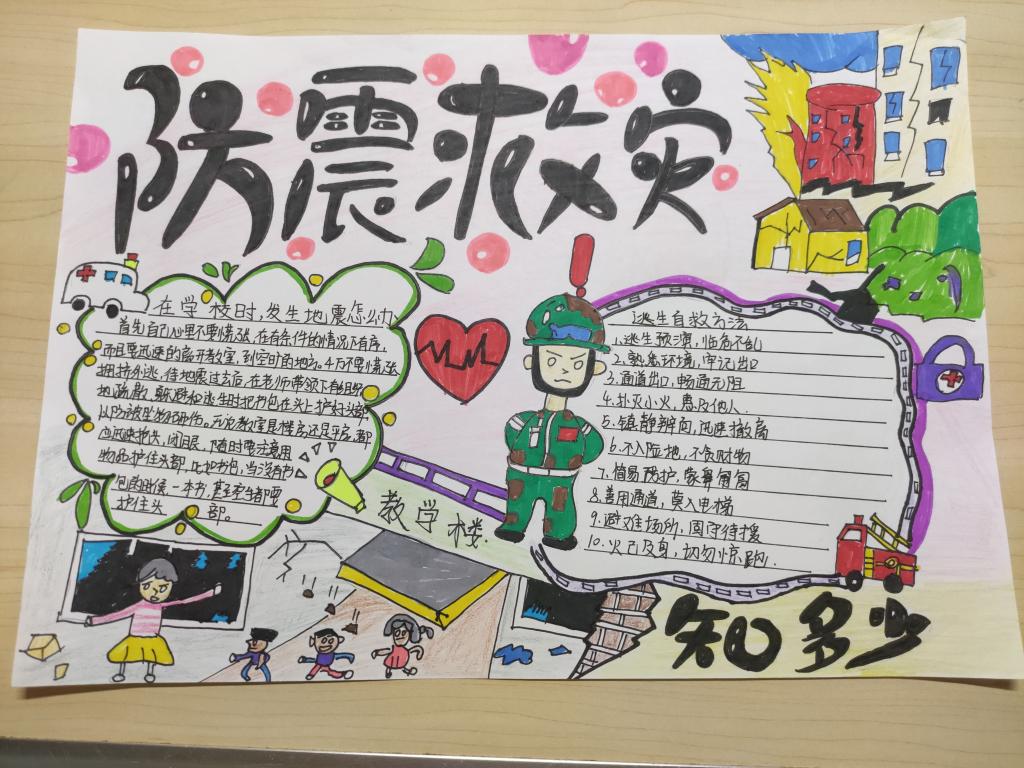 防震救灾
在学校时,发生地震怎么办
首先自己心里不要慌张,在有条件的情况下有序,
而且要迅速的离开教室,到空旷的地方。千万不要慌张
拥挤外逃,待地震过去后,在老师带领下有组织
地疏散,躲避和逃生时把书包在头上护好头部
以防被坠物砸伤。无论教室是楼房还是平房,都
应迅速抱头,闭眼,随时要注意用
物品护住头部,比如书包,当没有书
包的时候,一本书,甚至学生都要
护住头部。
逃生自救方法
1.逃生预演,临危不乱
2.熟悉环境,牢记出口
3.通道出口,畅通无阻
4.扑灭小火,惠及他人.
5.镇静辨向,迅速撤离
6.不入险地,不贪财物
7.简易防护,蒙鼻匍匐
8.善用通道,莫入电梯
9.避难场所,固守待援
10.火已及身,切勿惊跑.
教学楼.
知多少